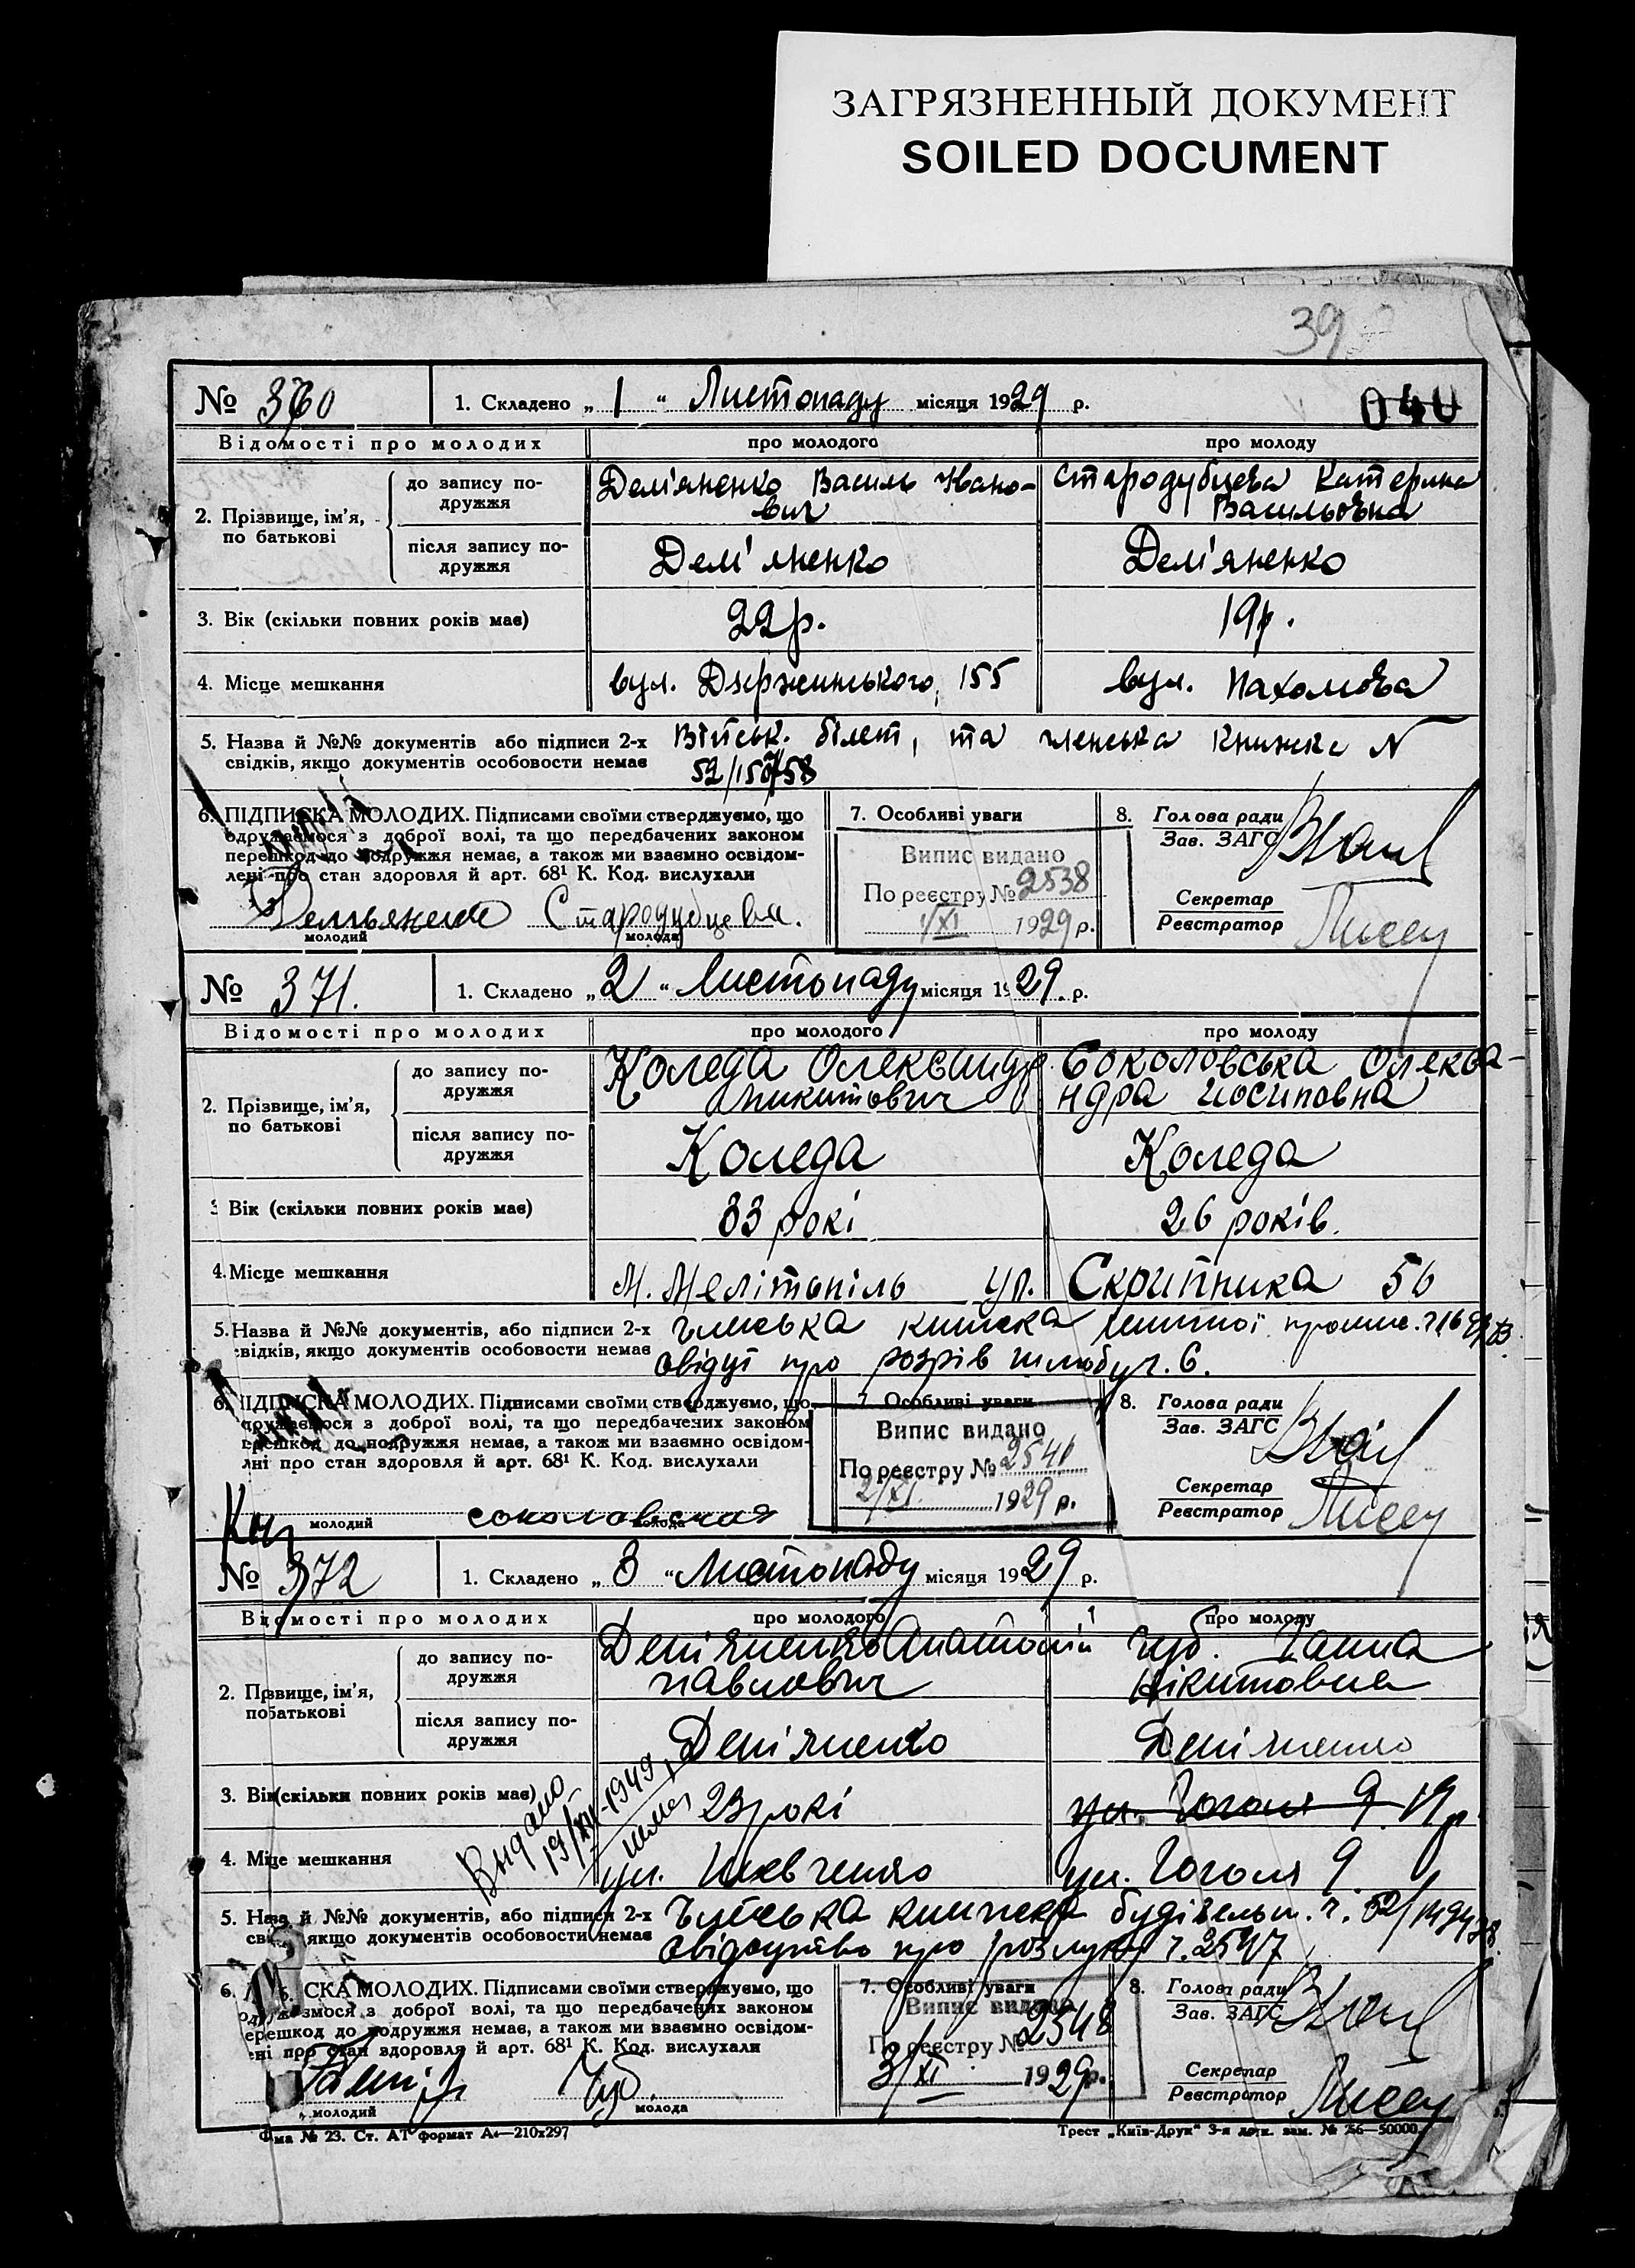 ЗАГРЯЗНЕННЫЙ ДОКУМЕНТ
SOILED DOCUMENT
39
№ 1. Складено „ 1 “ Листопаду місяця 1929 р. 040
Відомості про молодих про молодого про молоду
2. Прізвище, ім'я, по батькові
до запису по-
дружжя
Дем'яненко Василь Івано-
вич
Стародубцева Катерина
Васильовна
після запису по-
дружжя
Дем'яненко Дем'яненко
3. Вік (скільки повних років має) 22 р. 19 р.
4. Місце мешкання вул. Дзержинського, 155 вул. Пахомова
5. Назва й №№ документів або підписи 2-х Військ. білет, та членська книжка N
свідків, якщо документів особовости немає
6. ПІДПИСКА МОЛОДИХ. Підписами своїми стверджуємо, що
одружаємося з доброї волі, та що передбачених законом
перешкод до подружжя немає, а також ми взаємно освідом-
лені про стан здоровля й арт. 68¹ К. Код. вислухали
Стародубцева.
молодий молода
7. Особливі уваги
Випис видано
По реєстру № 2538
1/XI 1929 р.
8. Голова ради
Зав. ЗАГС
Секретар
Реєстратор
№ 371. 1. Складено „ 2 “ Листопаду місяця 1929. р.
Відомості про молодих про молодого про молоду
2. Прізвище, ім'я,
по батькові
до запису по-
дружжя
Коледа Олександр
Микитович
Соколовська Олекса-
ндра Йосиповна
після запису по-
дружжя
Коледа Коледа
3 Вік (скільки повних років має) 33 рокі 26 років.
4. Місце мешкання М. Мелітопіль ул. Скрипника 56
5. Назва й №№ документів, або підписи 2-х
свідків, якщо документів особовости немає
про розрів шлюбу ч. 6.
6. ПІДПИСКА МОЛОДИХ. Підписами своїми стверджуємо, що
дружаємося з доброї волі, та що передбачених законом
ерешкод до подружжя немає, а також ми взаємно освідом-
лні про стан здоровля й арт. 68¹ К. Код. вислухали
соколовская
молодий молода
7. Особливі уваги
Випис видано
По реєстру №
2/XI 1929 р.
8. Голова ради
Зав. ЗАГС
Секретар
Реєстратор
№ 372 1. Складено „ 3 “ Листопаду місяця 1929 р.
Відомості про молодих про молодого про молоду
2. Прзвище, ім'я,
побатькові
до запису по-
дружжя
Анатолій
Павлович
Чуб. Ганна
Нікитовна
після запису по-
дружжя
3. Вік (скільки повних років має) 23 рокі ул. Гоголя 9. 19 р
Видано
4. Міце мешкання ул. Шевченко ул. Гоголя 9
5. Назва й №№ документів, або підписи 2-х книжка будівельн. ч.
якщо документів особовости немає про
6. СКА МОЛОДИХ. Підписами своїми стверджуємо, що
змося з доброї волі, та що передбачених законом
ерешкод до подружжя немає, а також ми взаємно освідом-
ені про стан здоровля й арт. 68¹ К. Код. вислухали
Чуб.
молодий молода
7. Особливі уваги
Випис видано
По реєстру № 2548
3/XI 1929 р.
8. Голова ради
Зав. ЗАГС
Секретар
Реєстратор
№ 23. Ст. АТ формат А4—210x297 Трест „Київ-Друк“ 3-я